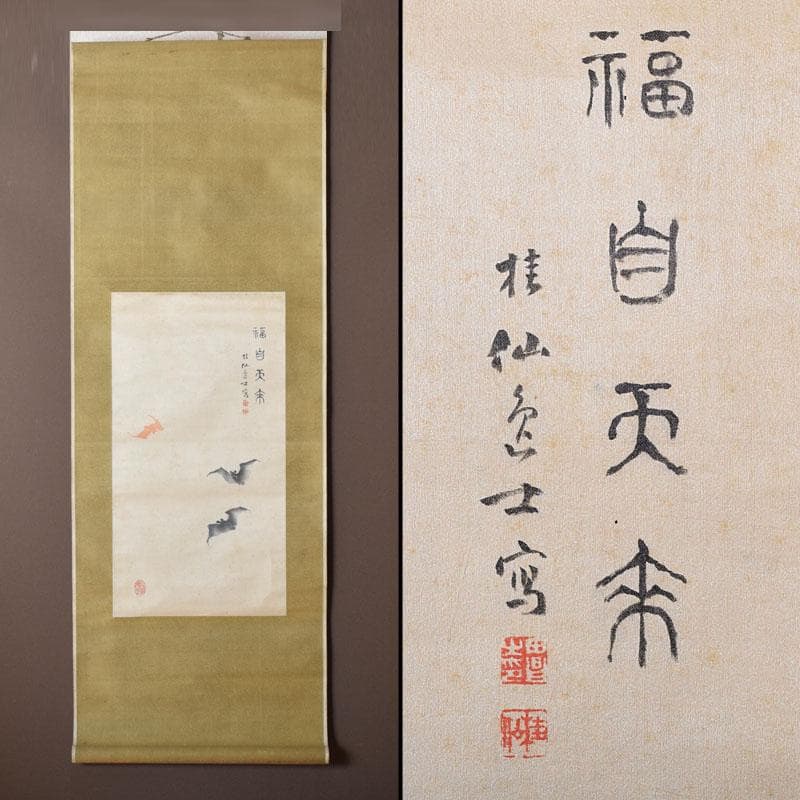 福自天来
桂仙逸士写